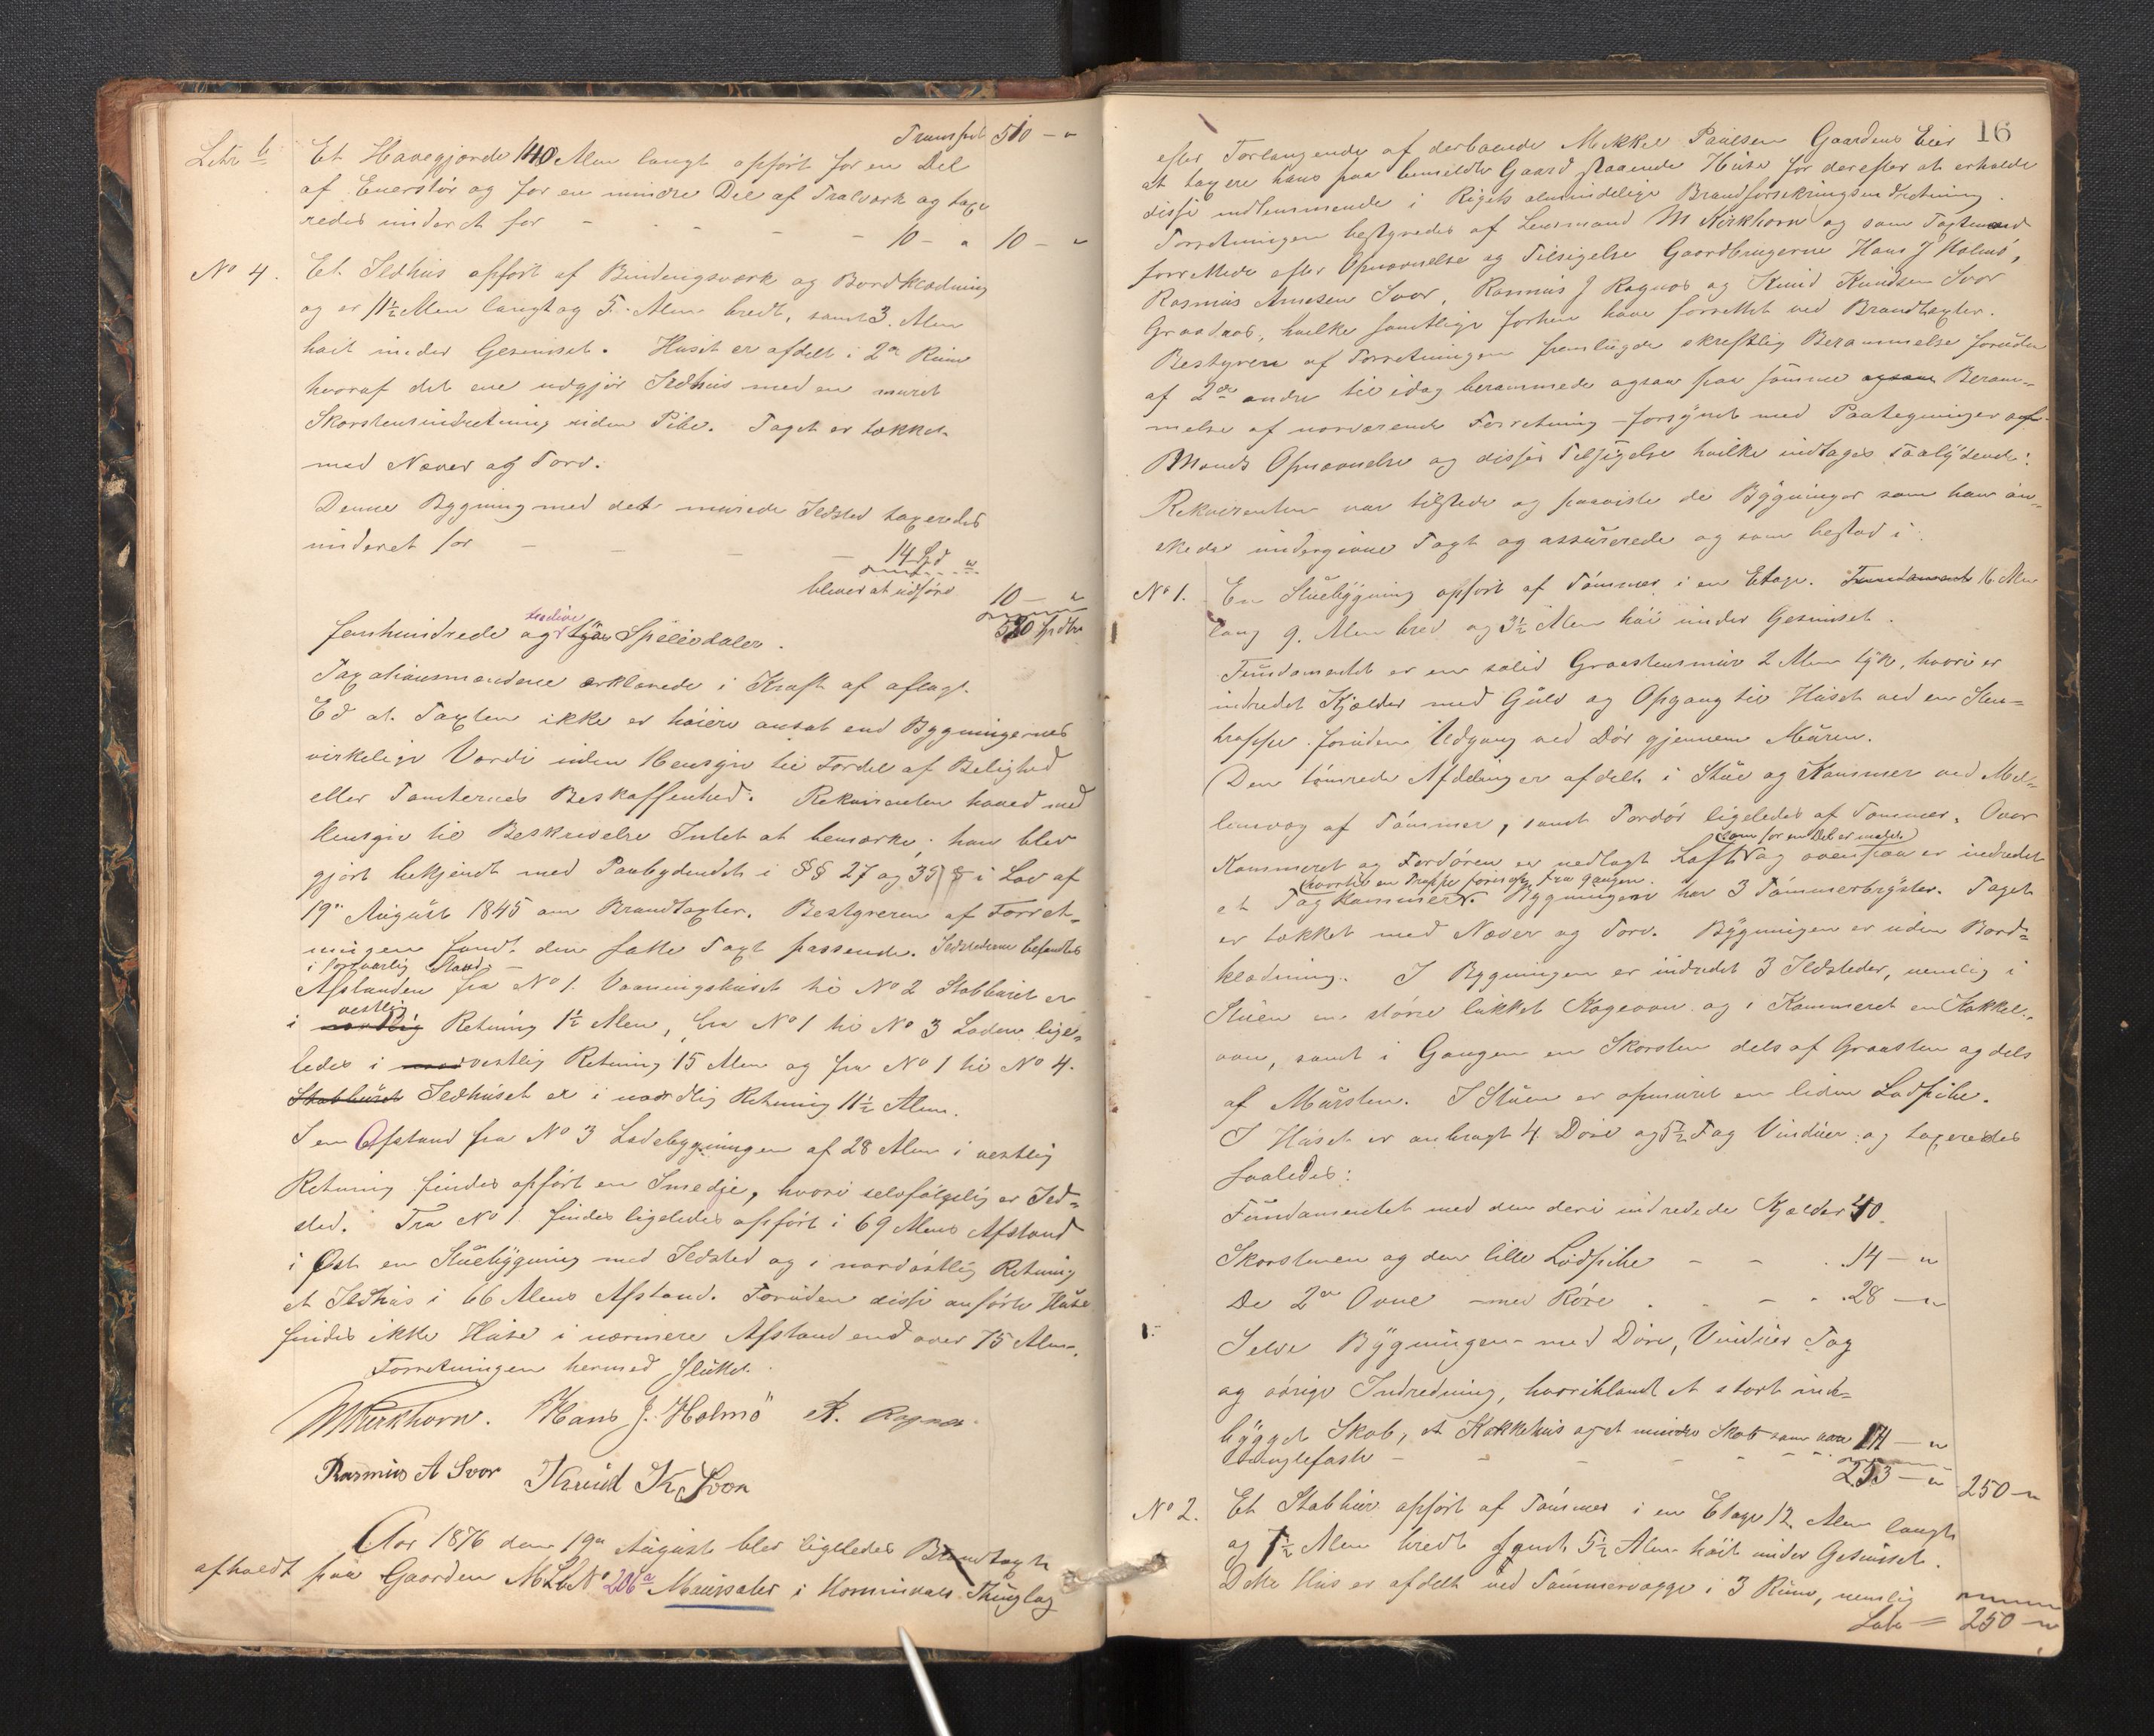 Transport 510 — "
Litr b. Et Havegjerde 140 Alen langt opført for en Del
af Enerstør og for en mindre Del af Tralværk og taxe
redes underet for - - - - 10 - " 10 - "
No 4. Et Ildhus opført af Bindingsværk og Bordklædning
og er 11½ Alen langt og 5. Alen bredt, samt 3. Alen
høit under Gesimset. Huset er afdelt i 2de Rum
hvoraf det ene udgjør Ildhus med en muret
Skorstensindretning uden Pibe. Taget er tækket
med Næver og Torv.
Denne Bygning med det murede Ildsted taxeredes
underet for - - - - 14 Spd "
bliver at udføre 10 - "
520 Spdlr
femhundrede og tredive tyve Speciedaler.
Taxationsmændene erklærede i Kraft af aflagt
Ed at Taxten ikke er høiere ansat end Bygningernes
virkelige Værdi uden Hensyn til Fordel af Belighed
eller Tomternes Beskaffenhed. Rekvirenten havde med
Hensyn til Beskrivelse Intet at bemærke; han blev
gjort bekjendt med Paabydendet i §§ 27 og 35 § i Lov af
19de August 1845 om Brandtaxter. Bestyreren af Forret-
ningen fandt den satte Taxt passende. Ildstederne befandtes
i forsvarlig Stand. -
Afstanden fra No 1. Vaaningshuset til No 2 Stabburet er
vestlig
i nordlig Retning 1½ Alen, fra No 1 til No 3 Laden lige-
ledes i nord vestlig Retning 15 Alen og fra No 1 til No 4.
Stabburet Ildhuset er i nordlig Retning 11½ Alen.
I en Afstand fra No 3 Ladebygningen af 28 Alen i vestlig
Retning findes opført en Smedje, hvori selvfølgelig er Ild-
sted. Fra No 1. findes ligeledes opført i 69 Alens Afstand
i Øst en Stuebygning med Ildsted og i nordøstlig Retning
et Ildhus i 66 Alens Afstand. Foruden disse anførte Huse
findes ikke Huse i nærmere Afstand end over 75 Alen.
Forretningen hermed sluttet.
M Kirkhorn. Hans J. Holmö R. Ragnes
Rasmus A Svor Knud K. Svor
Aar 1876 den 19de August blev ligeledes Brandtaxt
afholdt paa Gaarden M.L.No 206a Maursæter i Hornindals Thinglag
16
efter Forlangende af derboende Mikkel Paulsen Gaardens Eier
at taxere hans paa bemeldte Gaard staaende Huse for derefter at erholde
disse indlemmende i Rigets almindelige Brandforsikringsindretning.
Forretningen bestyredes af Lensmand M Kirkhorn og som Taxtmænd
fremmødte efter Opnævnelse og Tilsigelse Gaardbrugerne Hans J Holmö,
Rasmus Arnesen Svor, Rasmus J Ragnes og Knud Knudsen Svor
Graadaas, hvilke samtlige forhen have forrettet ved Brandtaxter.
Bestyreren af Forretningen fremlagde skriftlig Berammelse foruden
af 2de andre til idag berammede ogsaa paa samme ogsaa Beram-
melse af nærværende Forretning forsynet med Paategninger om
Mænds Opnævnelse og disses Tilsigelse hvilke indtages saalydende:
Rekvirenten var tilstede og paaviste de Bygninger som han øn-
skede undergivne Taxt og assurerede og som bestod i:
No 1. En Stuebygning opført af Tømmer i en Etage. Fundament 16 Alen
lang 9. Alen bred og 3½ Alen høi under Gesimset.
Fundamentet er en solid Graastensmur 2 Alen tyk, hvori er
indredet Kjælder med Gulv og Opgang til Huset ved en Sten-
trappe foruden Udgang ved Dør gjennem Muren.
Den tømrede Afdeling er afdelt i Stue og Kammer ved Mel-
lemvæg af Tømmer, samt Fordør ligeledes af Tømmer. Over
som for en Del er malet
Kammeret og Fordøren er nedlagt Loft og ovenpaa er indredet
hvortil en Trappe fører op fra Gangen.
et Tagkammer. Bygningen har 3 Tømmerbryster. Taget
er tækket med Næver og Torv. Bygningen er uden Bord-
klædning. I Bygningen er indredet 3 Ildsteder, nemlig i
Stuen en større lukket Kogeovn og i Kammeret en Kakkel-
ovn, samt i Gangen en Skorsten dels af Graasten og dels
af Mursten. I Stuen er opmuret en liden Lodpibe.
I Huset er anbragt 4 Døre og 5½ Fag Vinduer og taxeredes
saaledes:
Fundamentet med den deri indredede Kjælder 40.
Skorstenen og den lille Lodpibe - - . 14 - "
De 2de Ovne med Røre . . - - . 28 - "
Selve Bygningen med Døre, Vinduer Tag
og øvrige Indredning, hvoriblandt et stort ind-
bygget Skab, et Klokkehus og et mindre Skab som var 171 - "
Naglefaste - - - - -
253 - " 250 - "
No 2. Et Stabbur opført af Tømmer i en Etage 12 Alen langt
og 7½ Alen bredt samt 5½ Alen høit under Gesimset.
Dette Hus er afdelt ved Tømmervægge i 3 Rum, nemlig
Lats = 250 - "